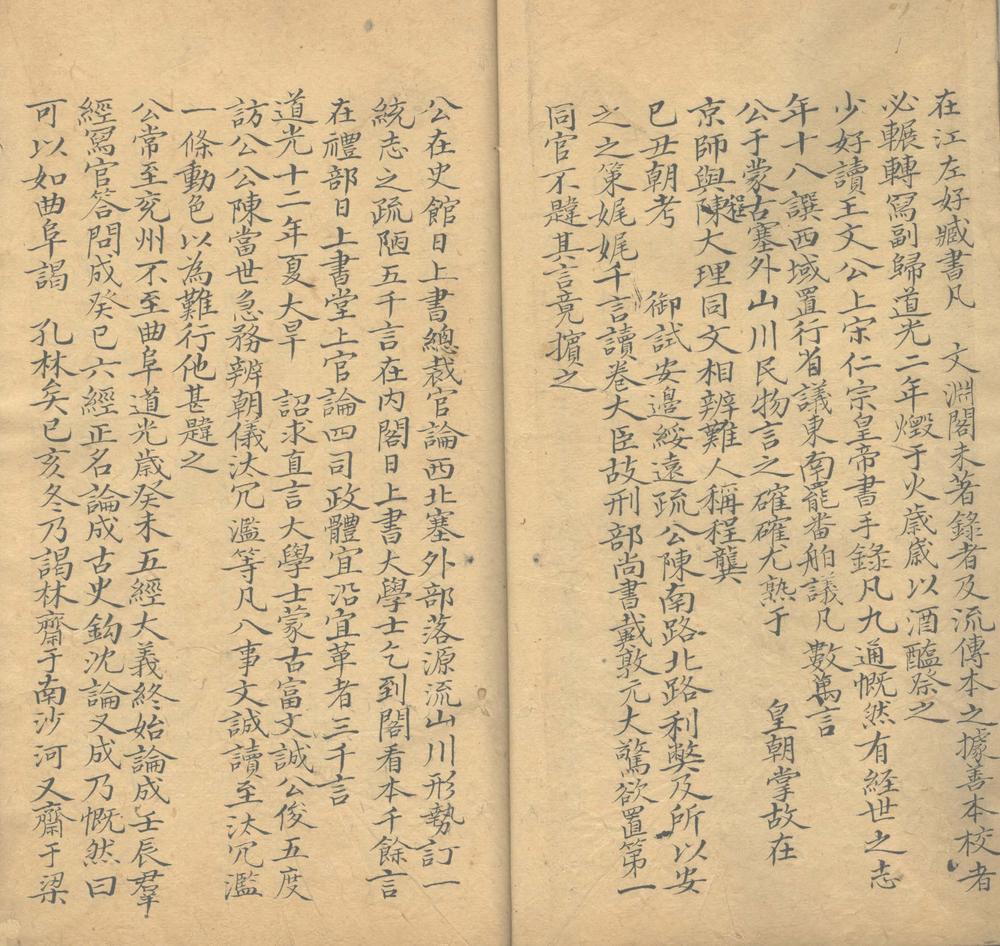 在江左好臧書凡　文淵閣未著錄者及流傳本之據善本校者
必輾轉寫副歸道光二年燬于火歲歲以酒醢祭之
少好讀王文公上宋仁宗皇帝書手錄凡九通慨然有經世之志
年十八譔西域置行省議東南罷番舶議凡數萬言
公于蒙古塞外山川民物言之確確尤熟于　皇朝掌故在
京師與陳大理同文相辨難人稱程龔
程
己丑朝考　御試安邊綏遠疏公陳南路北路利獘及所以安
之之策娓娓千言讀卷大臣故刑部尚書戴敦元大驚欲置第一
同官不韙其言竟擯之
公在史館日上書總裁官論西北塞外部落源流山川形勢訂一
統志之疏陋五千言在內閣日上書大學士乞到閣看本千餘言
在禮部日上書堂上官論四司政體宜沿宜革者三千言
道光十二年夏大旱　詔求直言大學士蒙古富文誠公俊五度
訪公公陳當世急務辨朝儀汰冗濫等凡八事文誠讀至汰冗濫
一條動色以為難行他甚韙之
公常至兗州不至曲阜道光歲癸未五經大義終始論成壬辰羣
經寫官答問成癸巳六經正名論成古史鈎沈論又成乃慨然曰
可以如曲阜謁　孔林矣己亥冬乃謁林齋于南沙河又齋于梁